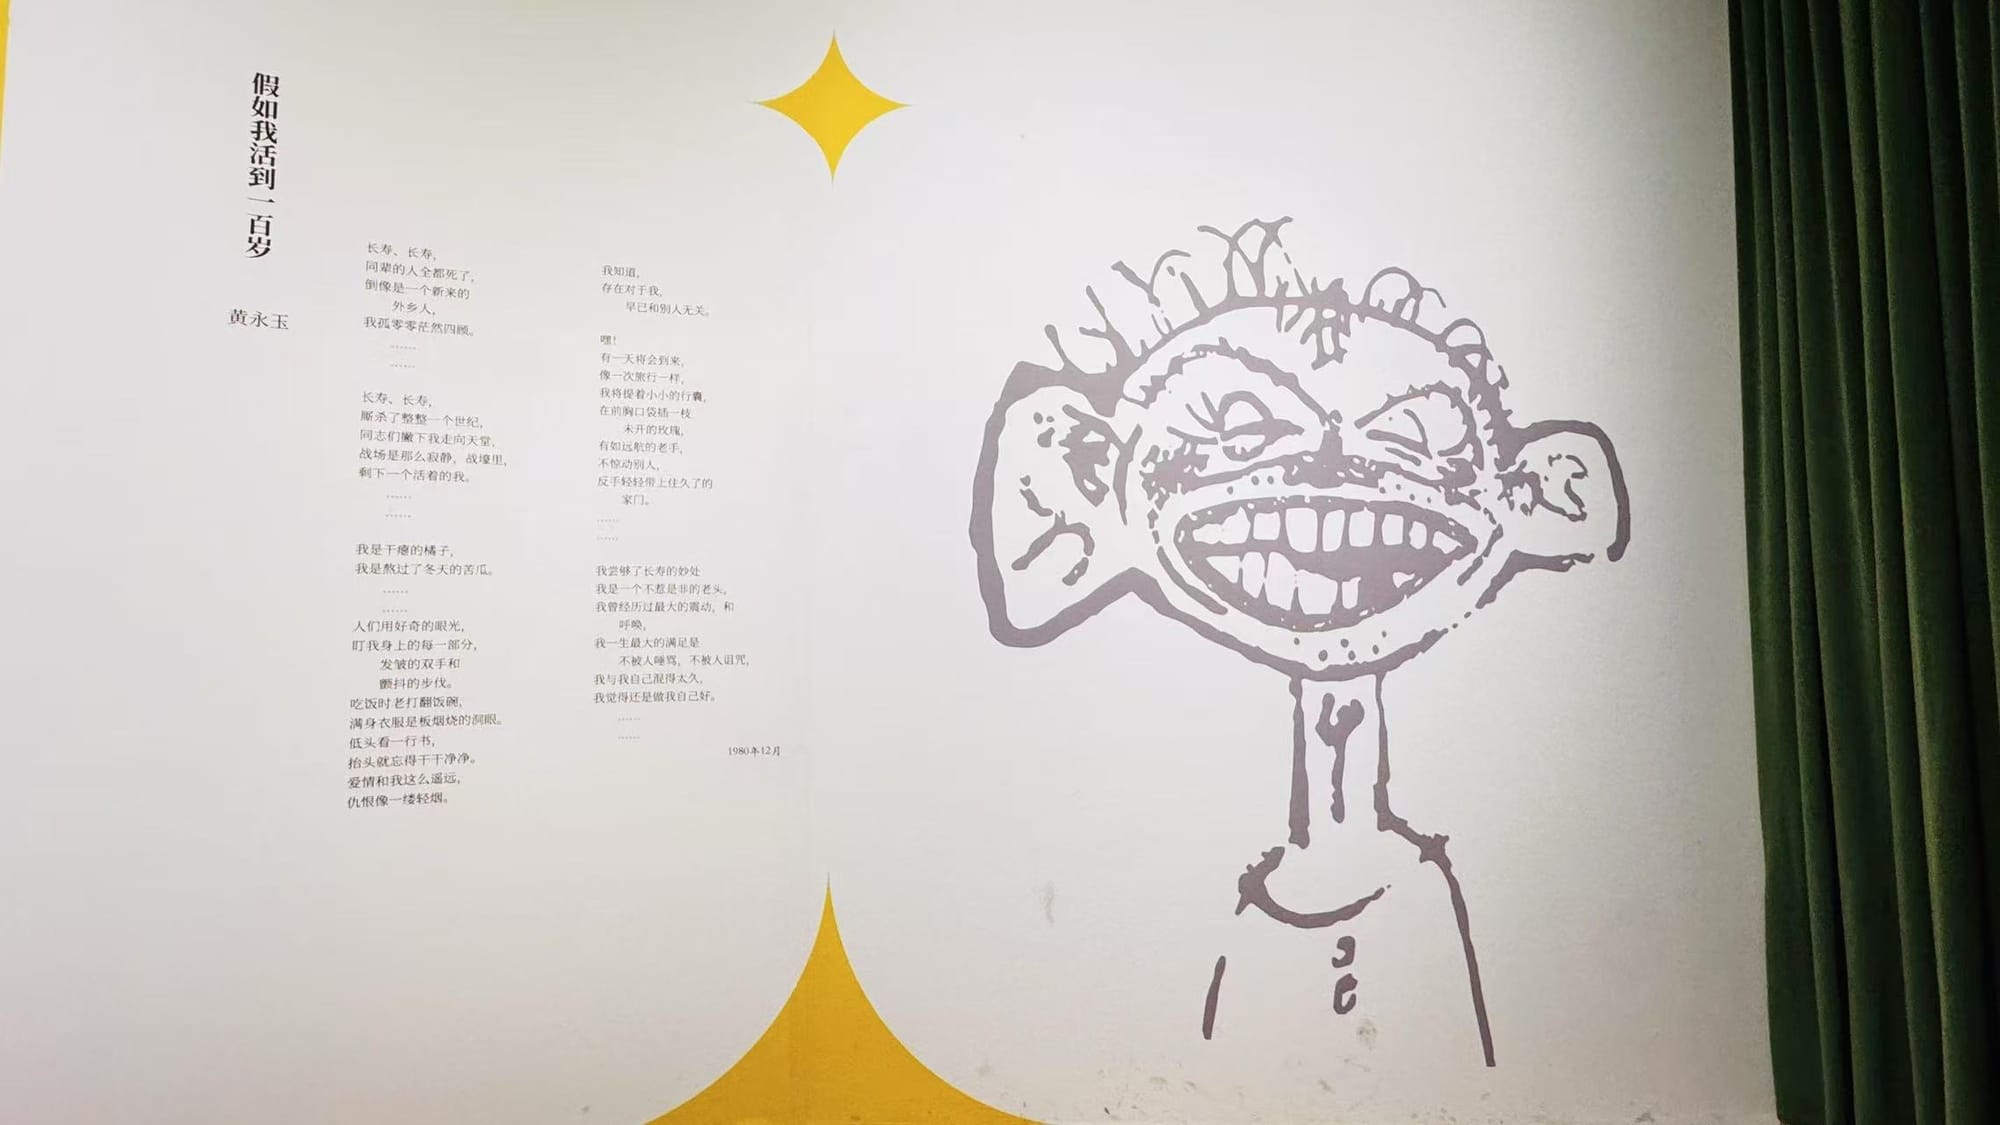 假如我活到一百岁
黄永玉
长寿、长寿，
同辈的人全都死了，
倒像是一个新来的
外乡人，
我孤零零茫然四顾。
……
……
长寿、长寿，
厮杀了整整一个世纪，
同志们撇下我走向天堂，
战场是那么寂静，战壕里，
剩下一个活着的我。
……
……
我是干瘪的橘子，
我是熬过了冬天的苦瓜。
……
……
人们用好奇的眼光，
盯我身上的每一部分，
发皱的双手和
颤抖的步伐。
吃饭时老打翻饭碗，
满身衣服是板烟烧的洞眼。
低头看一行书，
抬头就忘得干干净净。
爱情和我这么遥远，
仇恨像一缕轻烟。
我知道，
存在对于我，
早已和别人无关。
嘿！
有一天将会到来，
像一次旅行一样，
我将提着小小的行囊，
在前胸口袋插一枝
未开的玫瑰，
有如远航的老手，
不惊动别人，
反手轻轻带上住久了的
家门。
……
……
我尝够了长寿的妙处
我是一个不惹是非的老头，
我曾经历过最大的震动，和
呼唤，
我一生最大的满足是
不被人唾骂，不被人诅咒，
我与我自己混得太久，
我觉得还是做我自己好。
……
……
1980年12月